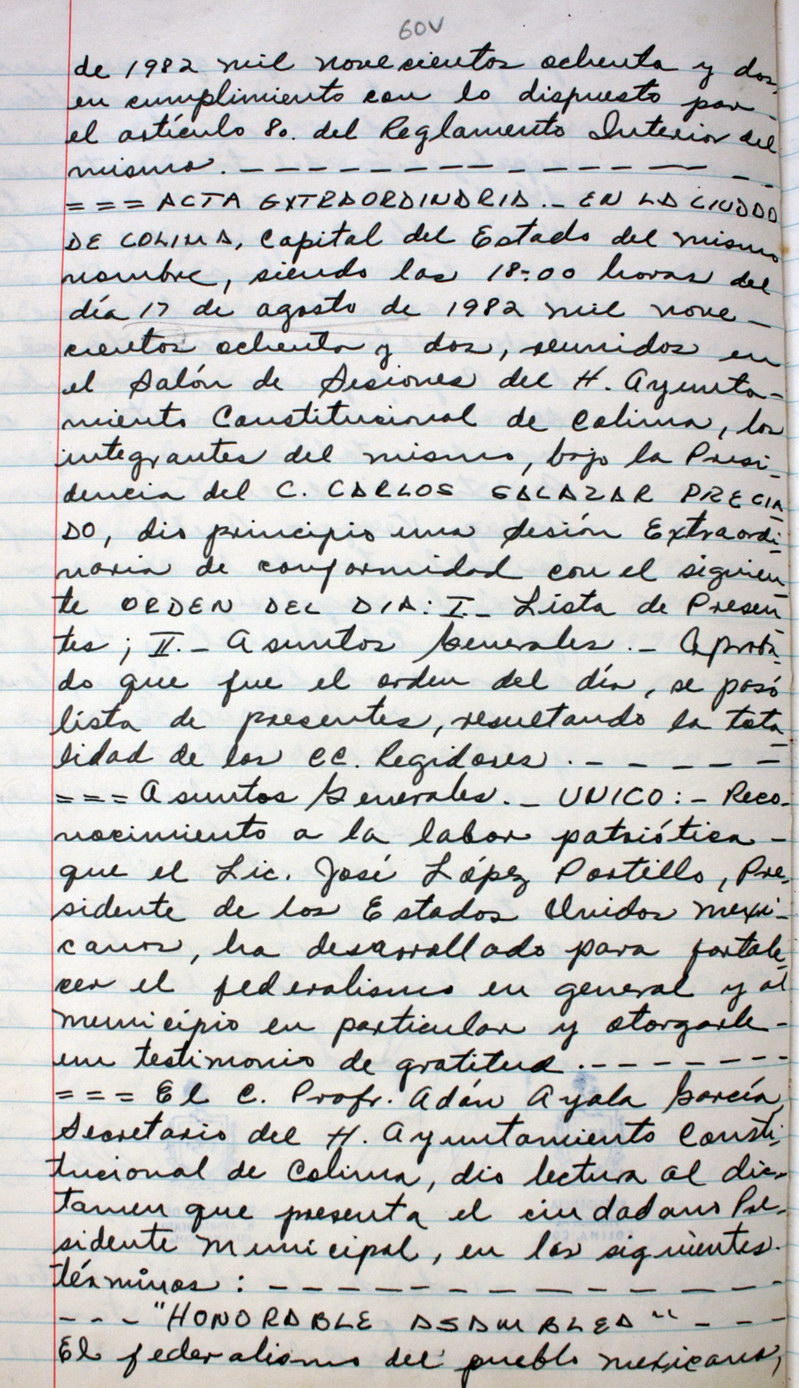 60V
de 1982 mil novecientos ochenta y dos,
en cumplimiento con lo dispuesto por
el artículo 8o. del Reglamento Interior del
mismo. _ _ _ _ _ _ _ _ _ _ _ _ _ _
=== ACTA EXTRAORDINARIA._ EN LA CIUDAD
DE COLIMA, Capital del Estado del mismo
nombre, siendo las 18:00 horas del
día 17 de agosto de 1982 mil nove-
cientos ochenta y dos, reunidos en
el Salón de Sesiones del H. Ayunta-
miento Constitucional de Colima, los
integrantes del mismo, bajo la Presi-
dencia del C. CARLOS SALAZAR PRECIA
DO, dio principio una Sesión Extraordi-
naria de conformidad con el siguien-
te ORDEN DEL DIA: I_ Lista de Presen-
tes; II._ Asuntos Generales._ Aproba-
do que fue el orden del día, se pasó
lista de presentes, resultando la tota-
lidad de los CC. Regidores. _ _ _ _ _
=== Asuntos Generales._ UNICO:- Reco-
nocimiento a la labor patriótica -
que el Lic. José López Portillo, Pre-
sidente de los Estados Unidos Mexi-
canos, ha desarrollado para fortale-
cer el federalismo en general y al
municipio en particular y otorgarle -
un testimonio de gratitud. - - - - - - -
=== El C. Profr. Adán Ayala García,
Secretario del H. Ayuntamiento Consti-
tucional de Colima, dio lectura al dic-
tamen que presenta el ciudadano Pre-
sidente Municipal, en los siguientes
términos: _ _ _ _ _ _ _ _ _ _ _ _ _
- - - "HONORABLE ASAMBLEA" - - -
El federalismo del pueblo mexicano,